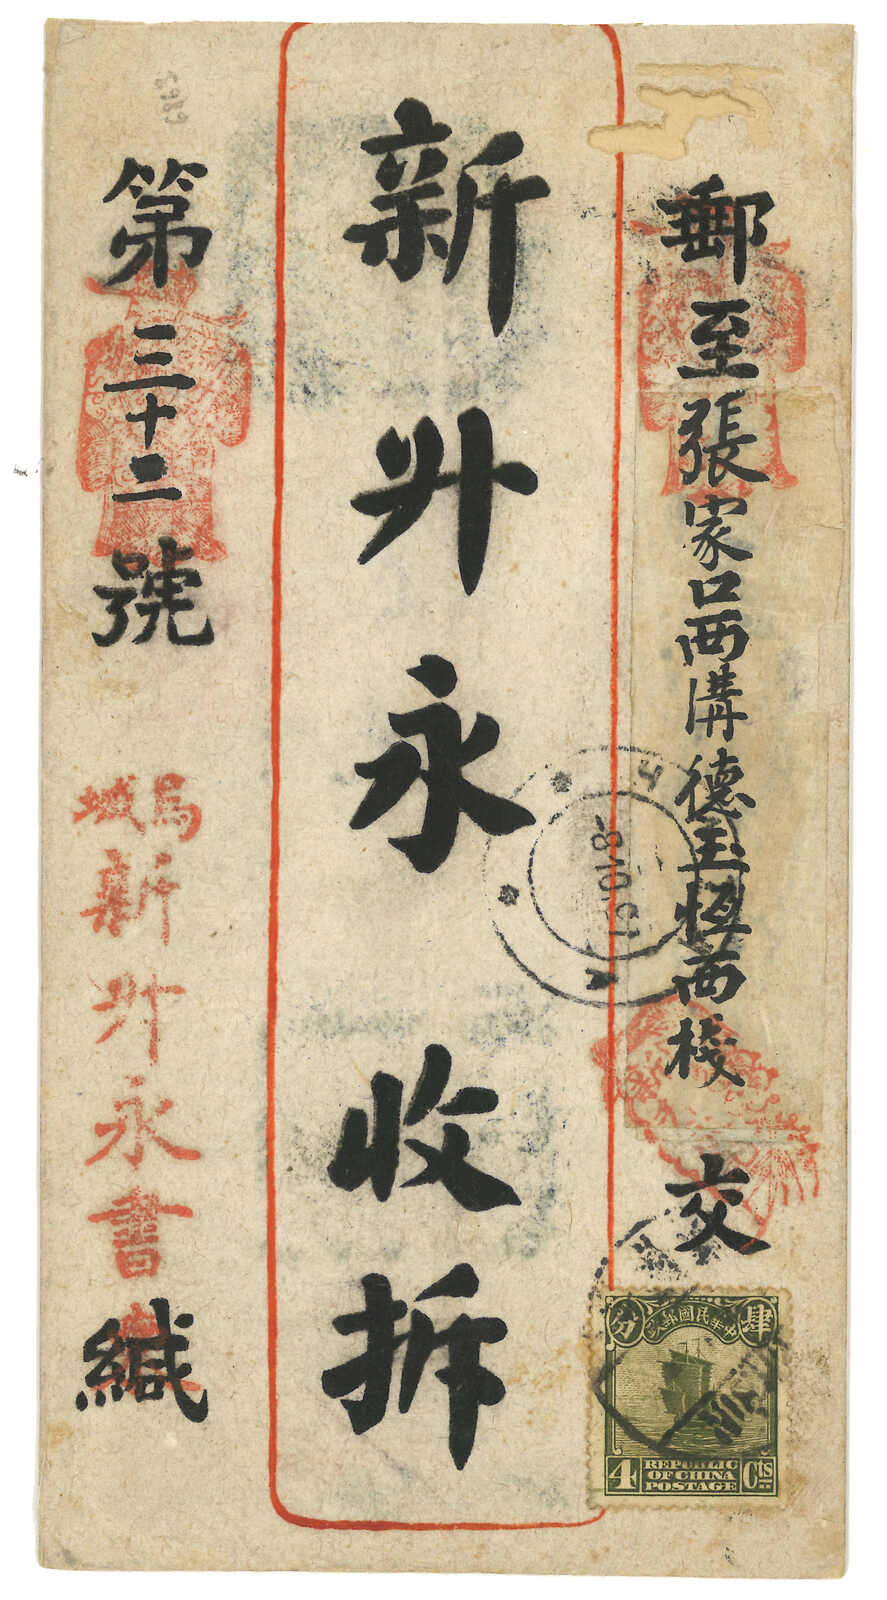 郵至張家口西溝德玉恆西棧交
新升永收拆
第三十二號
烏城
新升永書
緘
中華民國郵政
肆分
4 Cts
REPUBLIC
OF CHINA
POSTAGE